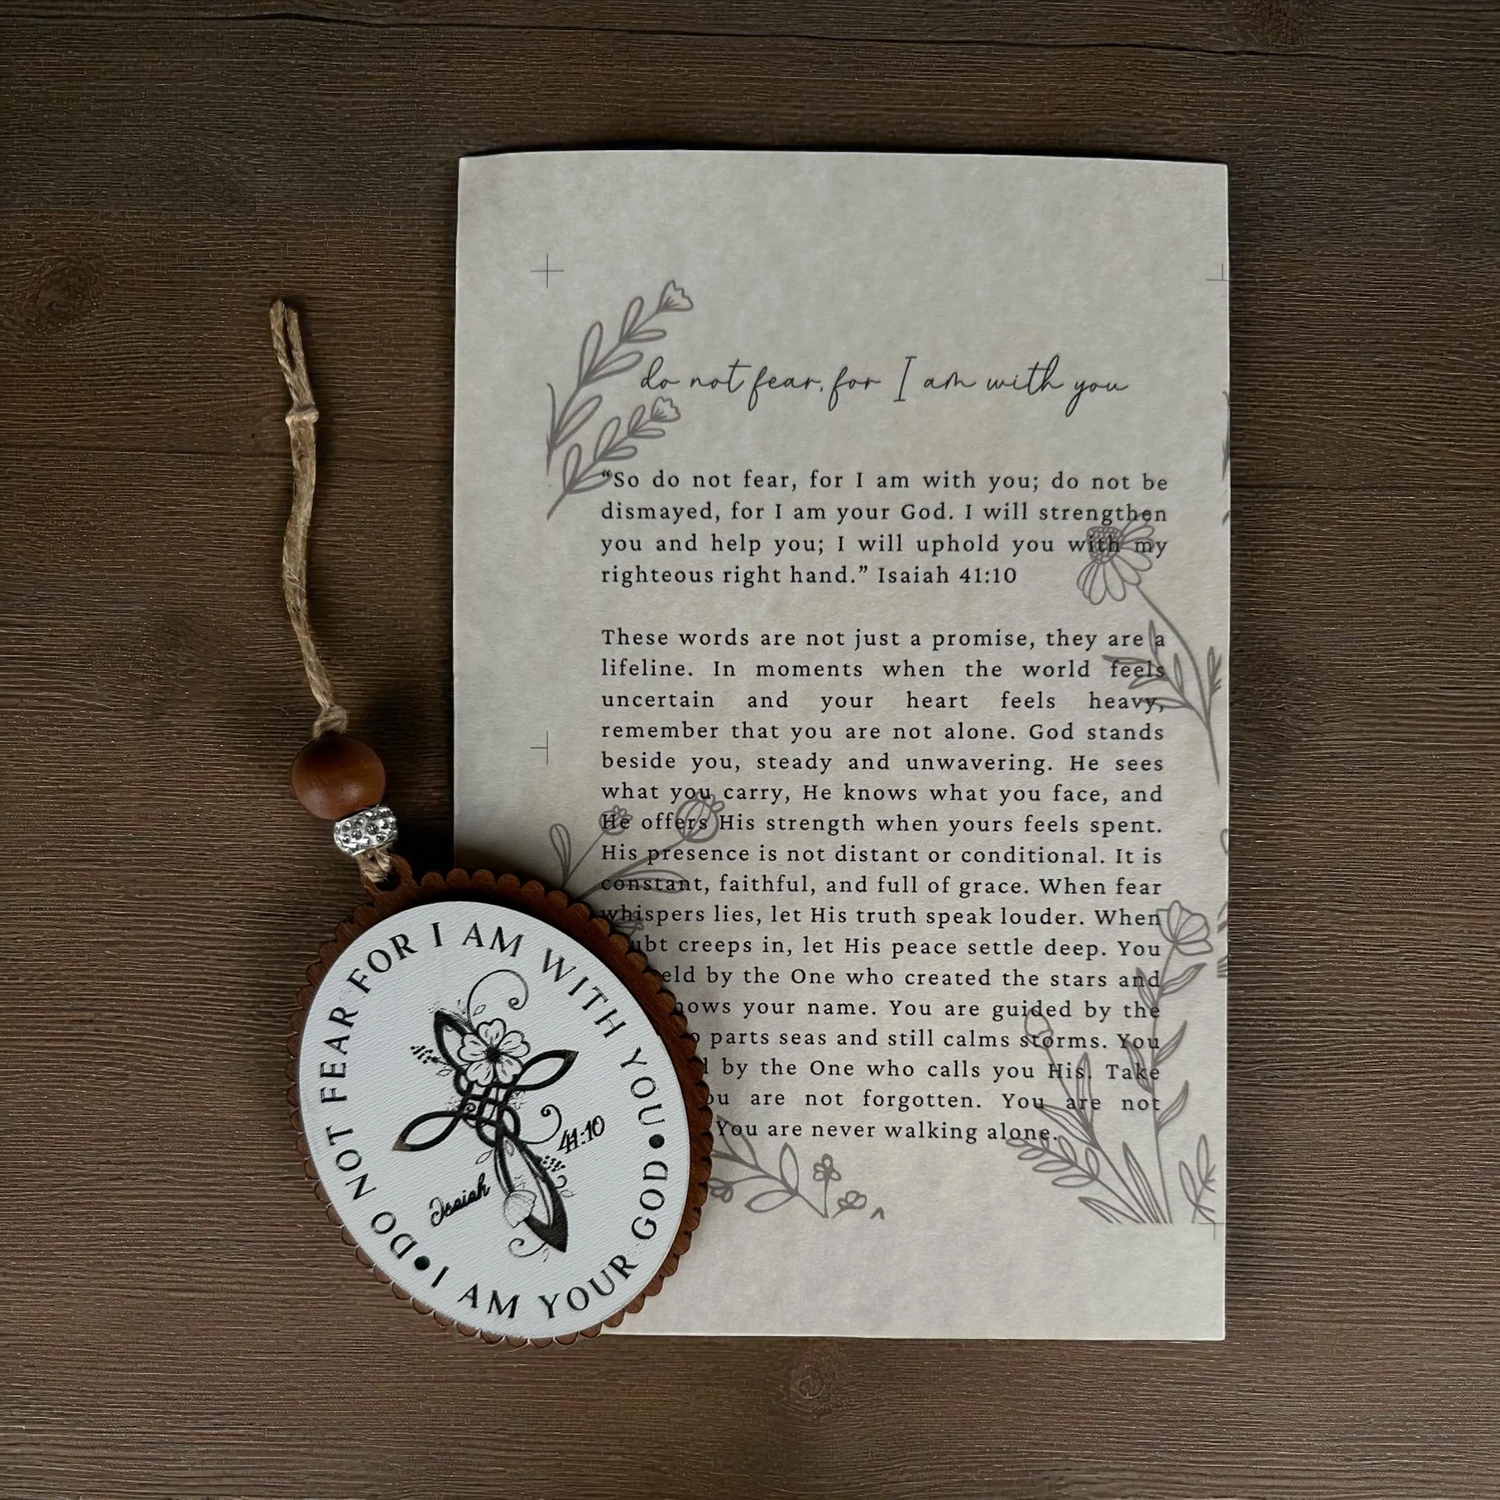 do not fear, for I am with you
“So do not fear, for I am with you; do not be
dismayed, for I am your God. I will strengthen
you and help you; I will uphold you with my
righteous right hand.” Isaiah 41:10
These words are not just a promise, they are a
lifeline. In moments when the world feels
uncertain and your heart feels heavy,
remember that you are not alone. God stands
beside you, steady and unwavering. He sees
what you carry, He knows what you face, and
He offers His strength when yours feels spent.
His presence is not distant or conditional. It is
constant, faithful, and full of grace. When fear
whispers lies, let His truth speak louder. When
creeps in, let His peace settle deep. You
by the One who created the stars and
your name. You are guided by the
parts seas and still calms storms. You
by the One who calls you His. Take
are not forgotten. You are not
You are never walking alone.
DO NOT FEAR FOR I AM WITH YOU
I AM YOUR GOD
Isaiah 41:10